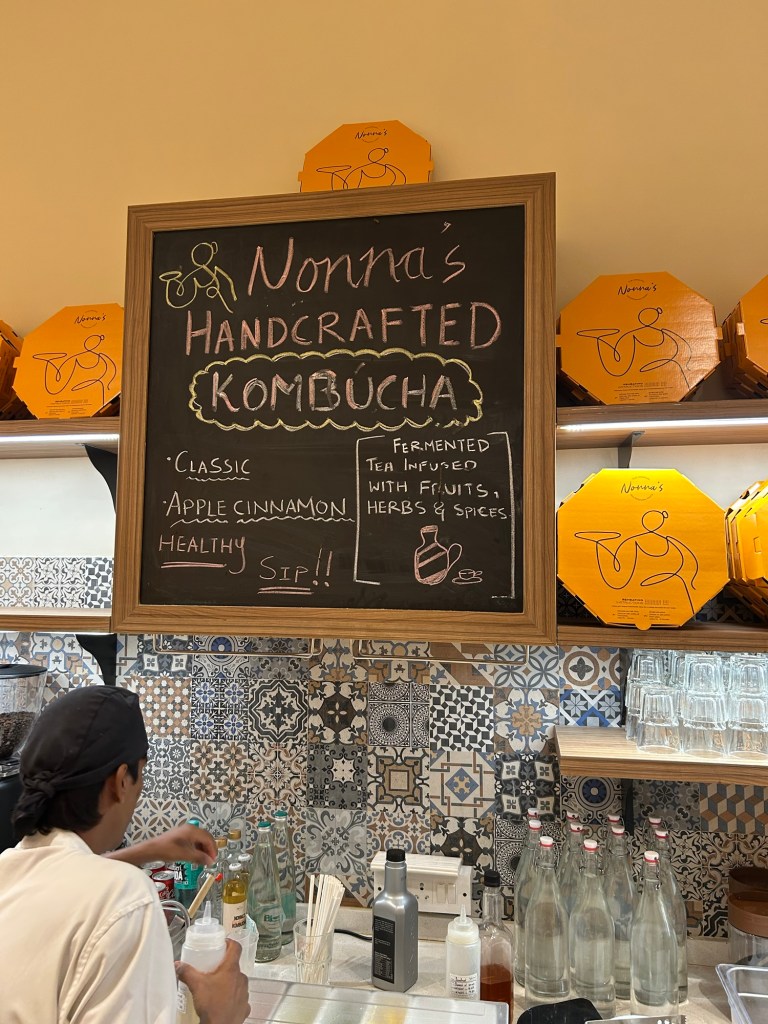 Nonna's
Nonna's
HANDCRAFTED
KOMBUCHA
·CLASSIC
·APPLE CINNAMON
HEALTHY
SIP!!
FERMENTED
TEA INFUSED
WITH FRUITS,
HERBS & SPICES
Nonna's
Nonna's
Nonna's